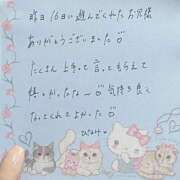 昨日16日に遊んでくれたお兄様
ありがとうございました♡
たくさん上手って言ってもらえて
嬉しかったな〜♡気持ち良く
なってくれてよかった♡